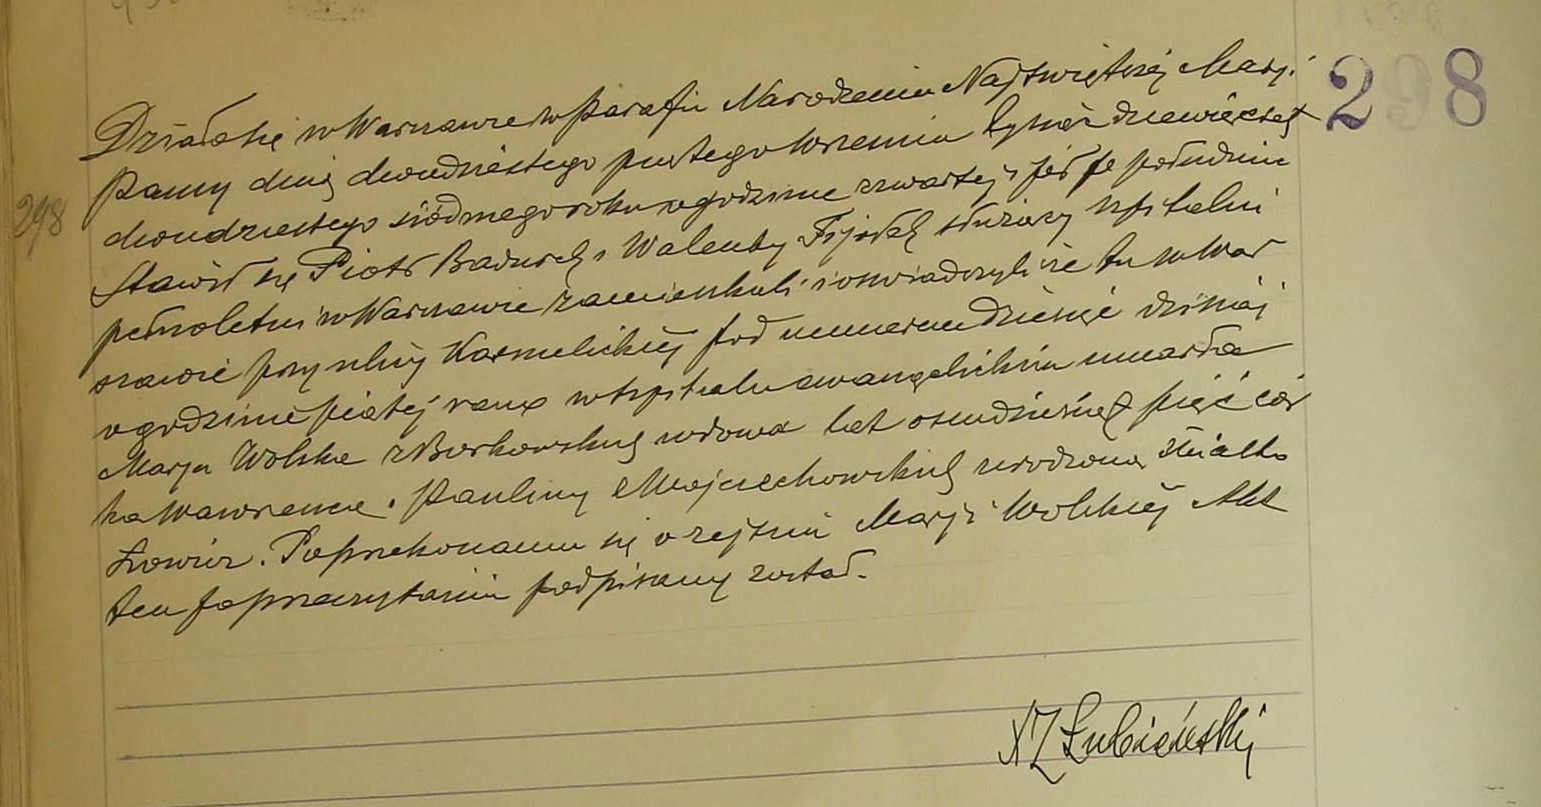 298
298
Działo się w Warszawie w Parafii Narodzenia Najświętszej Maryi
Panny dnia dwudziestego piątego Września tysiąc dziewięćset
dwudziestego siódmego roku o godzinie czwartej i pół po południu
Stawił się Piotr i Walenty służący szpitalni
pełnoletni w Warszawie zamieszkali i oświadczyli że tu w War
szawie przy ulicy Karmelickiej pod numerem dziesięć dzisiaj
o godzinie piątej rano w szpitalu ewangelickim umarła
Marja Wolska z Borkowskich wdowa lat osiemdziesiąt pięć cór
ka Wawrzeńca i Pauliny z Wojciechowskich urodzona
Łowicz. Po przekonaniu się o zejściu Marji Wolskiej Akt
ten po przeczytaniu podpisany został.
X Z Łubieński